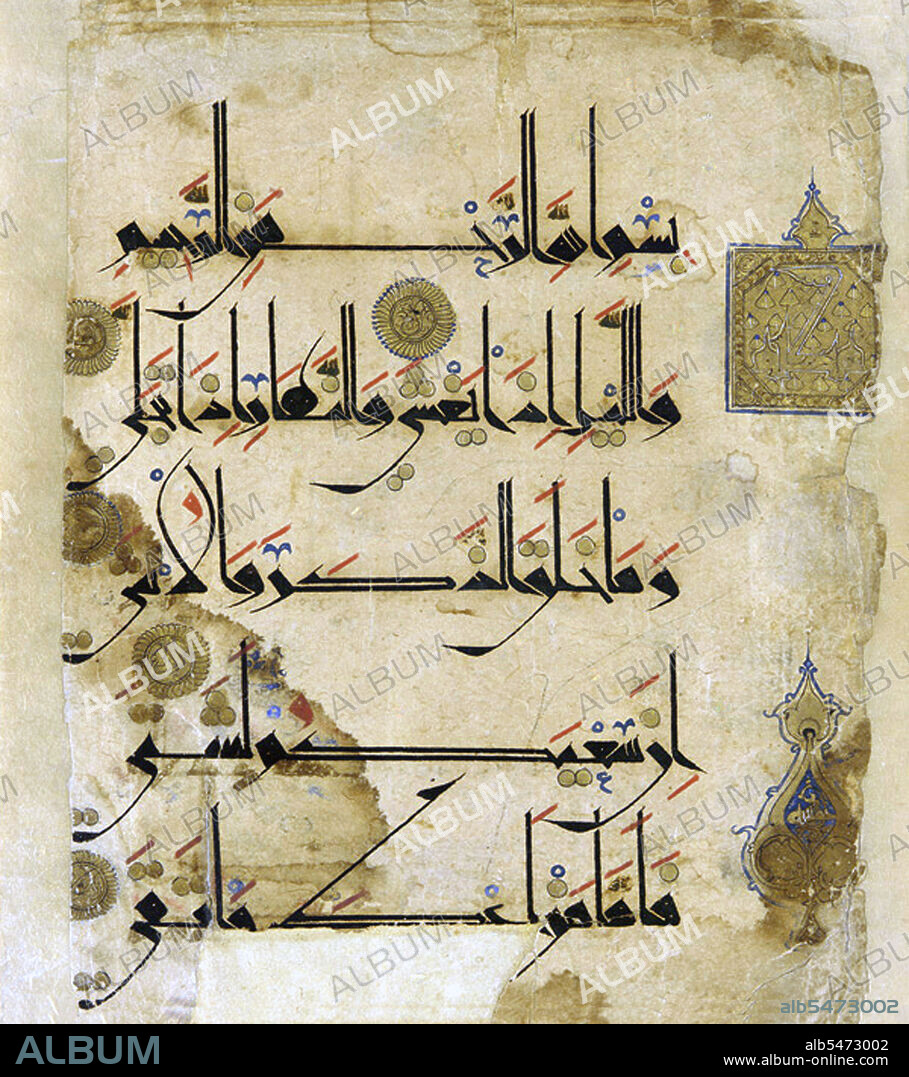 بسم الله الرحمن الرحيم
والليل اذا يغشى والنهار اذا تجلى
وما خلق الذكر والانثى
ان سعيكم لشتى
فاما من اعطى واتقى
ALBUM
alb5473002
ALBUM
alb5473002
www.album-online.com